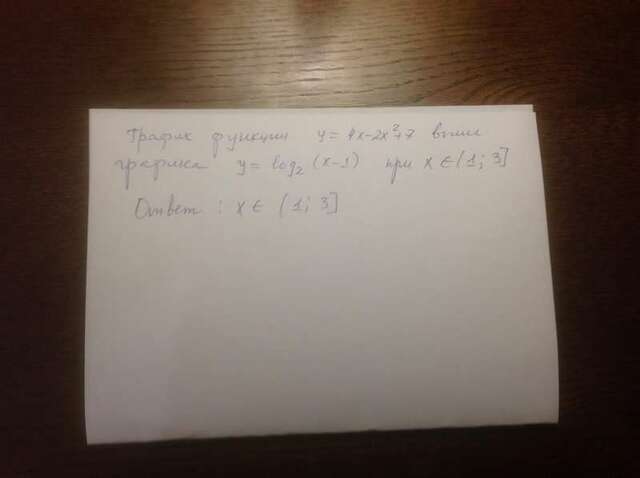 График функции y = 4x-2x²+7 выше
графика y = log₂ (x-1) при x ∈ (1; 3]
Ответ : x ∈ (1; 3]